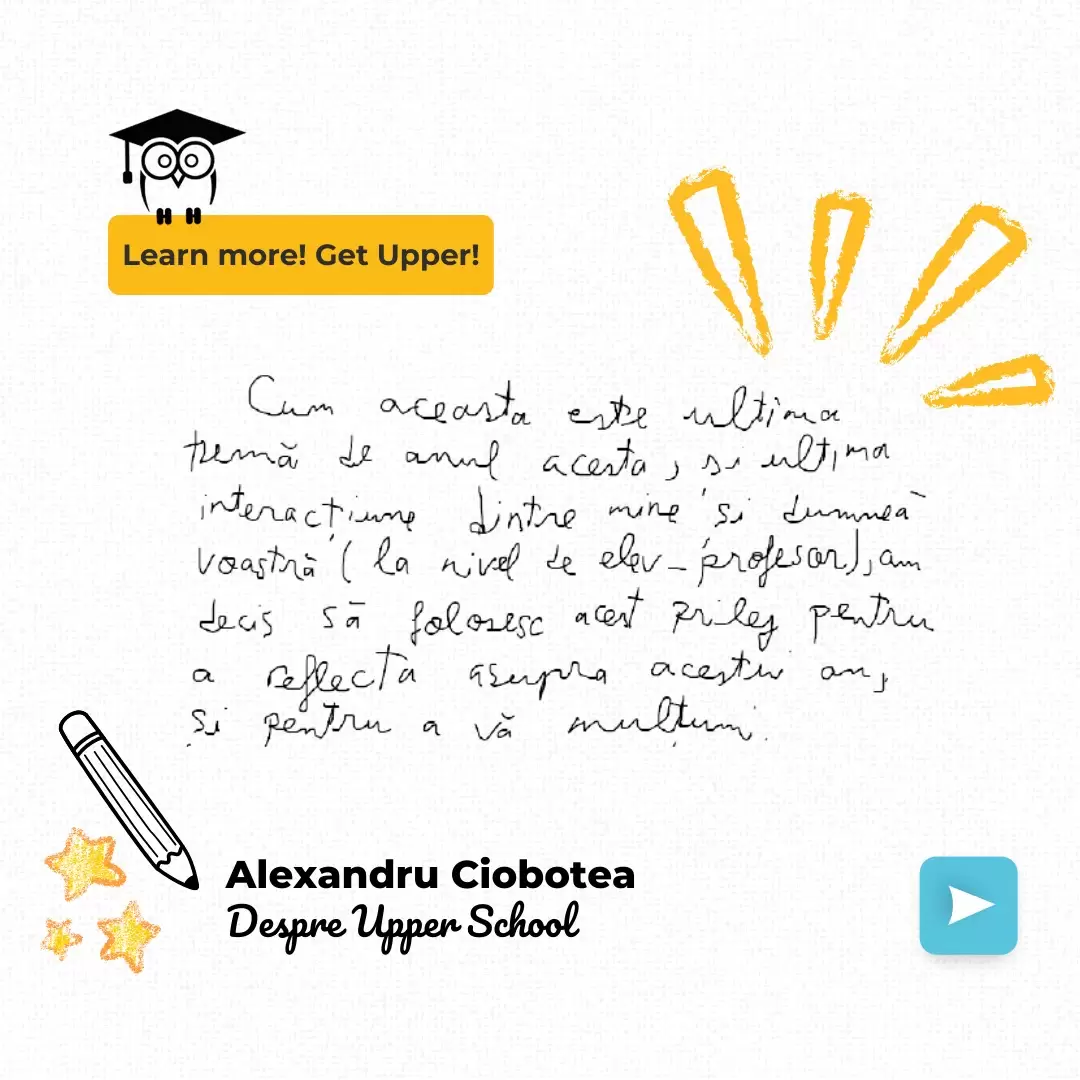 Learn more! Get Upper!
Cum aceasta este ultima
temă de anul acesta, și ultima
interacțiune dintre mine și dumnea
voastră (la nivel de elev-profesor), am
decis să folosesc acest prilej pentru
a reflecta asupra acestui an,
și pentru a vă mulțumi.
Alexandru Ciobotea
Despre Upper School